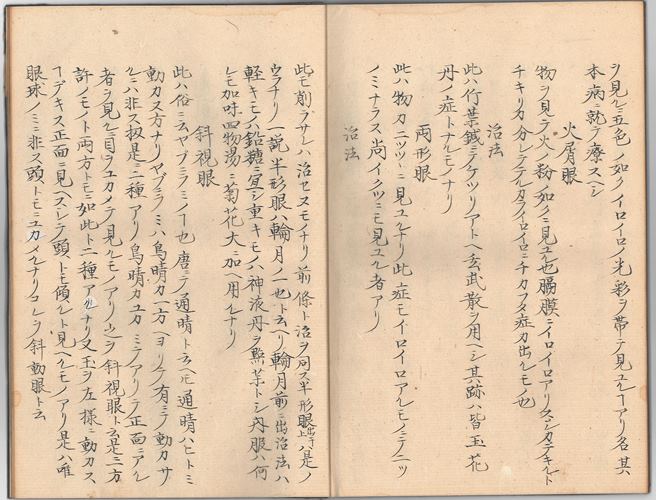 ヲ見ル三五色ノ如クイロイロノ光彩ヲ帯テ見ユルヿアリ各其
本病ニ就テ療スベシ
火屑眼
物ヲ見テ火ノ粉ノ如クニ見ユル也膈膜ニイロイロアリ
チキリカ分レテ イロイロニチカフタ症カ出ルモノ也
治法
此ハ竹葉鍼ニテケツリアトヘ玄武散ヲ用ヘシ其跡ハ皆玉花
丹ノ症トナルモノナリ
両形眼
此ハ物カ二ツツヽニ見ユルナリ此症モイロイロアルモノニテ二ツ
ノミナラス尚イクツニモ見ユル者アリ
治法
此モ削ラサレハ治セスモノナリ前條ト治ヲ同ス半形眼出于上ハ是ノ
ウラナリ一説半形眼ハ輪月ノヿ也ト云ヘリ輪月前ニ出治法ハ
軽キモノハ鉛糖ニ宜シ重キモノハ神液丹ヲ點薬トシ内服ハ何
レモ加味四物湯ニ菊花大ニ加ヘ用ルナリ
斜視眼
此ハ俗ニ云ヤブニラミノヿ也唐ニテ通睛ト云ヘ𪜈通睛ハヒトミ
動カス方ナリヤブニラミハ烏睛カ一方ヘヨリテ有ミテ動カサ
ルニハ非ス扨是ニ二種アリ烏睛カユカミテアリテ正面ニアル
者ヲ見ルニ目ヲユカメテ見ルモノアリ ヲ斜視眼ト云是ニ一方
許ノモノト両方トモニ如此ト二種アルナリ又玉ヲ左様ニ動カス
ヿデキス正面ニ見ヘスシテ頭トモ傾ケ見ヘルモノアリ是ハ唯
眼球ノミニ非ス頭トモニユカメルナリコレヲ斜動眼ト云